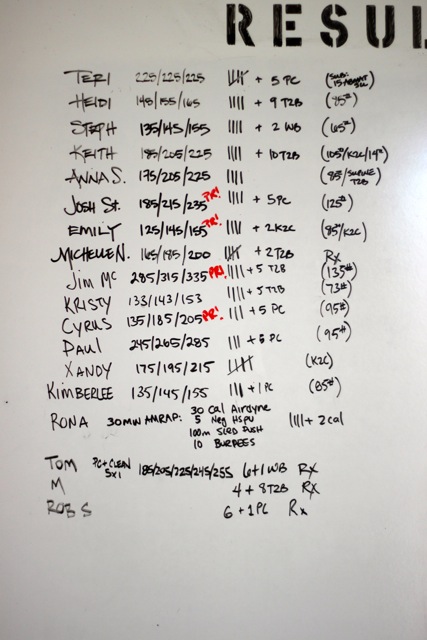 RESUL
TERI 225/225/225 |||| + 5 PC (SUB:
HEIDI 145/155/165 |||| + 9 T2B (85#)
STEPH 135/145/155 |||| + 2 WB (65#)
KEITH 185/205/225 |||| + 10 T2B (105#/K2C/14#)
ANNA S. 175/205/225 |||| (85#/SUPINE T2B)
JOSH St. 185/245/235 PR! |||| + 5 PC (125#)
EMILY 125/145/155 PR! |||| + 2 K2C (85#/K2C)
MICHELLE N. 165/185/200 |||| + 2 T2B Rx
Jim Mc 285/315/335 PR! |||| + 5 T2B (135#)
KRISTY 133/143/153 |||| + 5 T2B (73#)
CYRUS 135/185/205 PR! |||| + 5 PC (95#)
PAUL 245/265/285 ||| + 5 PC (95#)
XANDY 175/195/215 |||| (K2C)
KIMBERLEE 135/145/155 ||| + 1 PC (85#)
RONA 30 MIN AMRAP: 30 Cal Airdyne |||| + 2 cal
5 Neg HSPU
100m SLED PUSH
10 BURPEES
TOM PC+CLEAN 5x1 185/205/225/245/255 6+1 WB RX
M 4 + 8 T2B RX
ROB S 6 + 1 PC Rx